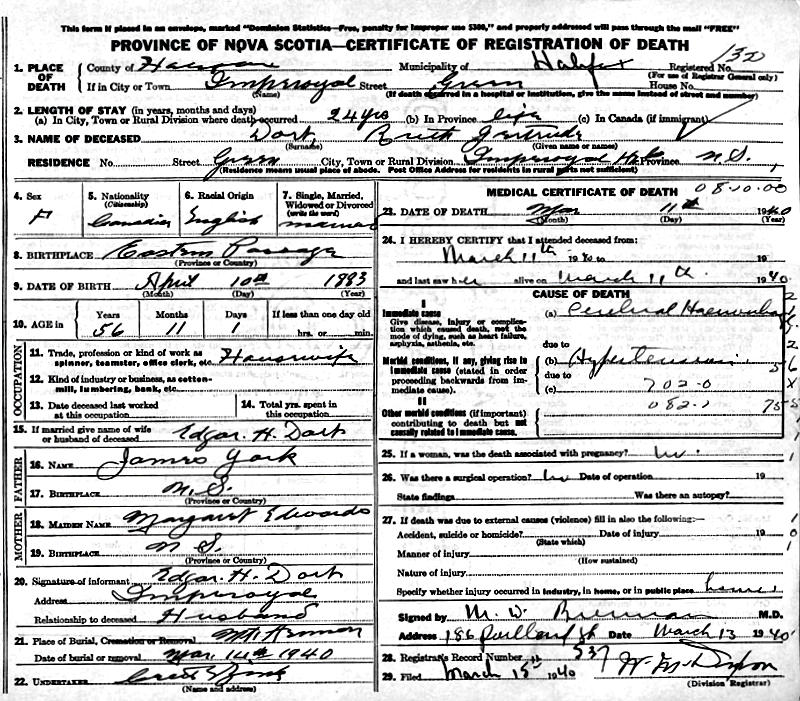 This form if placed in an envelope, marked "Dominion Statistics—Free, penalty for improper use $300," and properly addressed will pass through the mail "FREE"
PROVINCE OF NOVA SCOTIA—CERTIFICATE OF REGISTRATION OF DEATH
132
1. PLACE OF DEATH
County of Municipality of Halifax Registered No.
(For use of Registrar General only)
If in City or Town Imperoyal Street Green House No.
(Name) (If death occurred in a hospital or institution, give the name instead of street and number)
2. LENGTH OF STAY (in years, months and days)
(a) In City, Town or Rural Division where death occurred 24 yrs (b) In Province life (c) In Canada (if immigrant)
3. NAME OF DECEASED Dort, Ruth Gertrude
(Surname) (Given name or names)
RESIDENCE No. Street Green City, Town or Rural Division Imperoyal Hfx Province N.S.
(Residence means usual place of abode. Post Office Address for residents in rural parts not sufficient)
4. Sex F
5. Nationality (Citizenship) Canadian
6. Racial Origin English
7. Single, Married, Widowed or Divorced (write the word) married
8. BIRTHPLACE Eastern Passage
(Province or Country)
9. DATE OF BIRTH April 10th 1883
(Month) (Day) (Year)
10. AGE in Years Months Days If less than one day old
56 11 1 hrs. or min.
OCCUPATION
11. Trade, profession or kind of work as spinner, teamster, office clerk, etc. Housewife
12. Kind of industry or business, as cotton-mill, lumbering, bank, etc.
13. Date deceased last worked at this occupation
14. Total yrs. spent in this occupation
15. If married give name of wife or husband of deceased Edgar. H. Dort
FATHER
16. NAME James York
17. BIRTHPLACE N.S.
(Province or Country)
MOTHER
18. MAIDEN NAME Margaret Edwards
19. BIRTHPLACE N S.
(Province or Country)
20. Signature of informant Edgar. H. Dort
Address Imperoyal
Relationship to deceased Husband
21. Place of Burial, Cremation or Removal Mt. Hermon
Date of burial or removal Mar. 14th 1940
22. UNDERTAKER
(Name and address)
MEDICAL CERTIFICATE OF DEATH 08-10.00
23. DATE OF DEATH Mar 11th 1940
(Month) (Day) (Year)
24. I HEREBY CERTIFY that I attended deceased from:
March 11th 1940 to 19
and last saw her alive on March 11th 1940
CAUSE OF DEATH
I
Immediate cause
Give disease, injury or complication which caused death, not the mode of dying, such as heart failure, asphyxia, asthenia, etc.
(a) Cerebral Haemorrhage
due to
Morbid conditions, if any, giving rise to immediate cause (stated in order proceeding backwards from immediate cause).
(b) Hypertension
due to
(c) 702-0
II
Other morbid conditions (if important) contributing to death but not causally related to immediate cause.
25. If a woman, was the death associated with pregnancy?
26. Was there a surgical operation? Date of operation 19
State findings Was there an autopsy?
27. If death was due to external causes (violence) fill in also the following:—
Accident, suicide or homicide? Date of injury 19
(State which)
Manner of injury
(How sustained)
Nature of injury
Specify whether injury occurred in industry, in home, or in public place home
Signed by M. W. Brennan M.D.
Address 186 Portland St Date March 13 1940
28. Registrar's Record Number 537
29. Filed March 15th 1940
(Division Registrar)